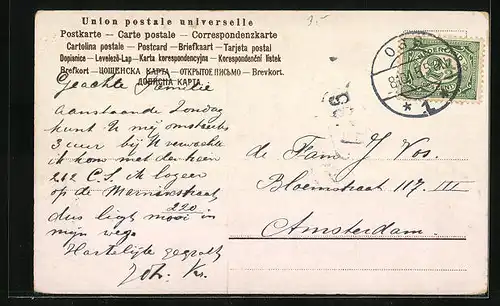 Union postale universelle
Postkarte — Carte postale — Correspondenzkarte
Cartolina postale — Postcard — Briefkaart — Tarjeta postal
Dopisnice — Levelező-Lap — Karta korespondencyjna — Korespondenční lístek
Brefkort — ЦОЩЕНСКА КАРТА — ОТКРЫТОЕ ПИСЬМО — Brevkort.
ДОПИСНА КАРТА.
3.-
Geachte Familie
Aanstaande Zondag
kunt U mij omstreeks
3 uur bij U verwachten
ik kom met den trein
212 C.S. ik logeer
op de Marnixstraat
220
dus ligt mooi in
mijn weg.
Hartelijk gegroet
Joh. Vos.
de Fam. J Vos.
Bloemstraat 117. III
Amsterdam.